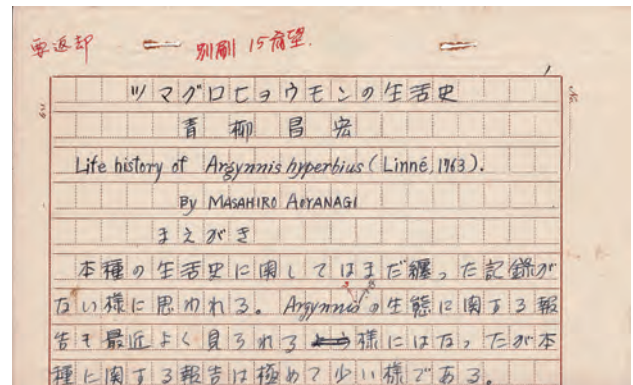 要返却 別刷15希望.
1
ツマグロヒョウモンの生活史
青柳昌宏
Life history of Argynnis hyperbius (Linné, 1963).
By MASAHIRO AOYANAGI
まえがき
本種の生活史に関してはまだ纏った記録が
ない様に思われる。Argynnisの生態に関する報
告も最近よく見られる様にはなったが本
種に関する報告は極めて少い様である。